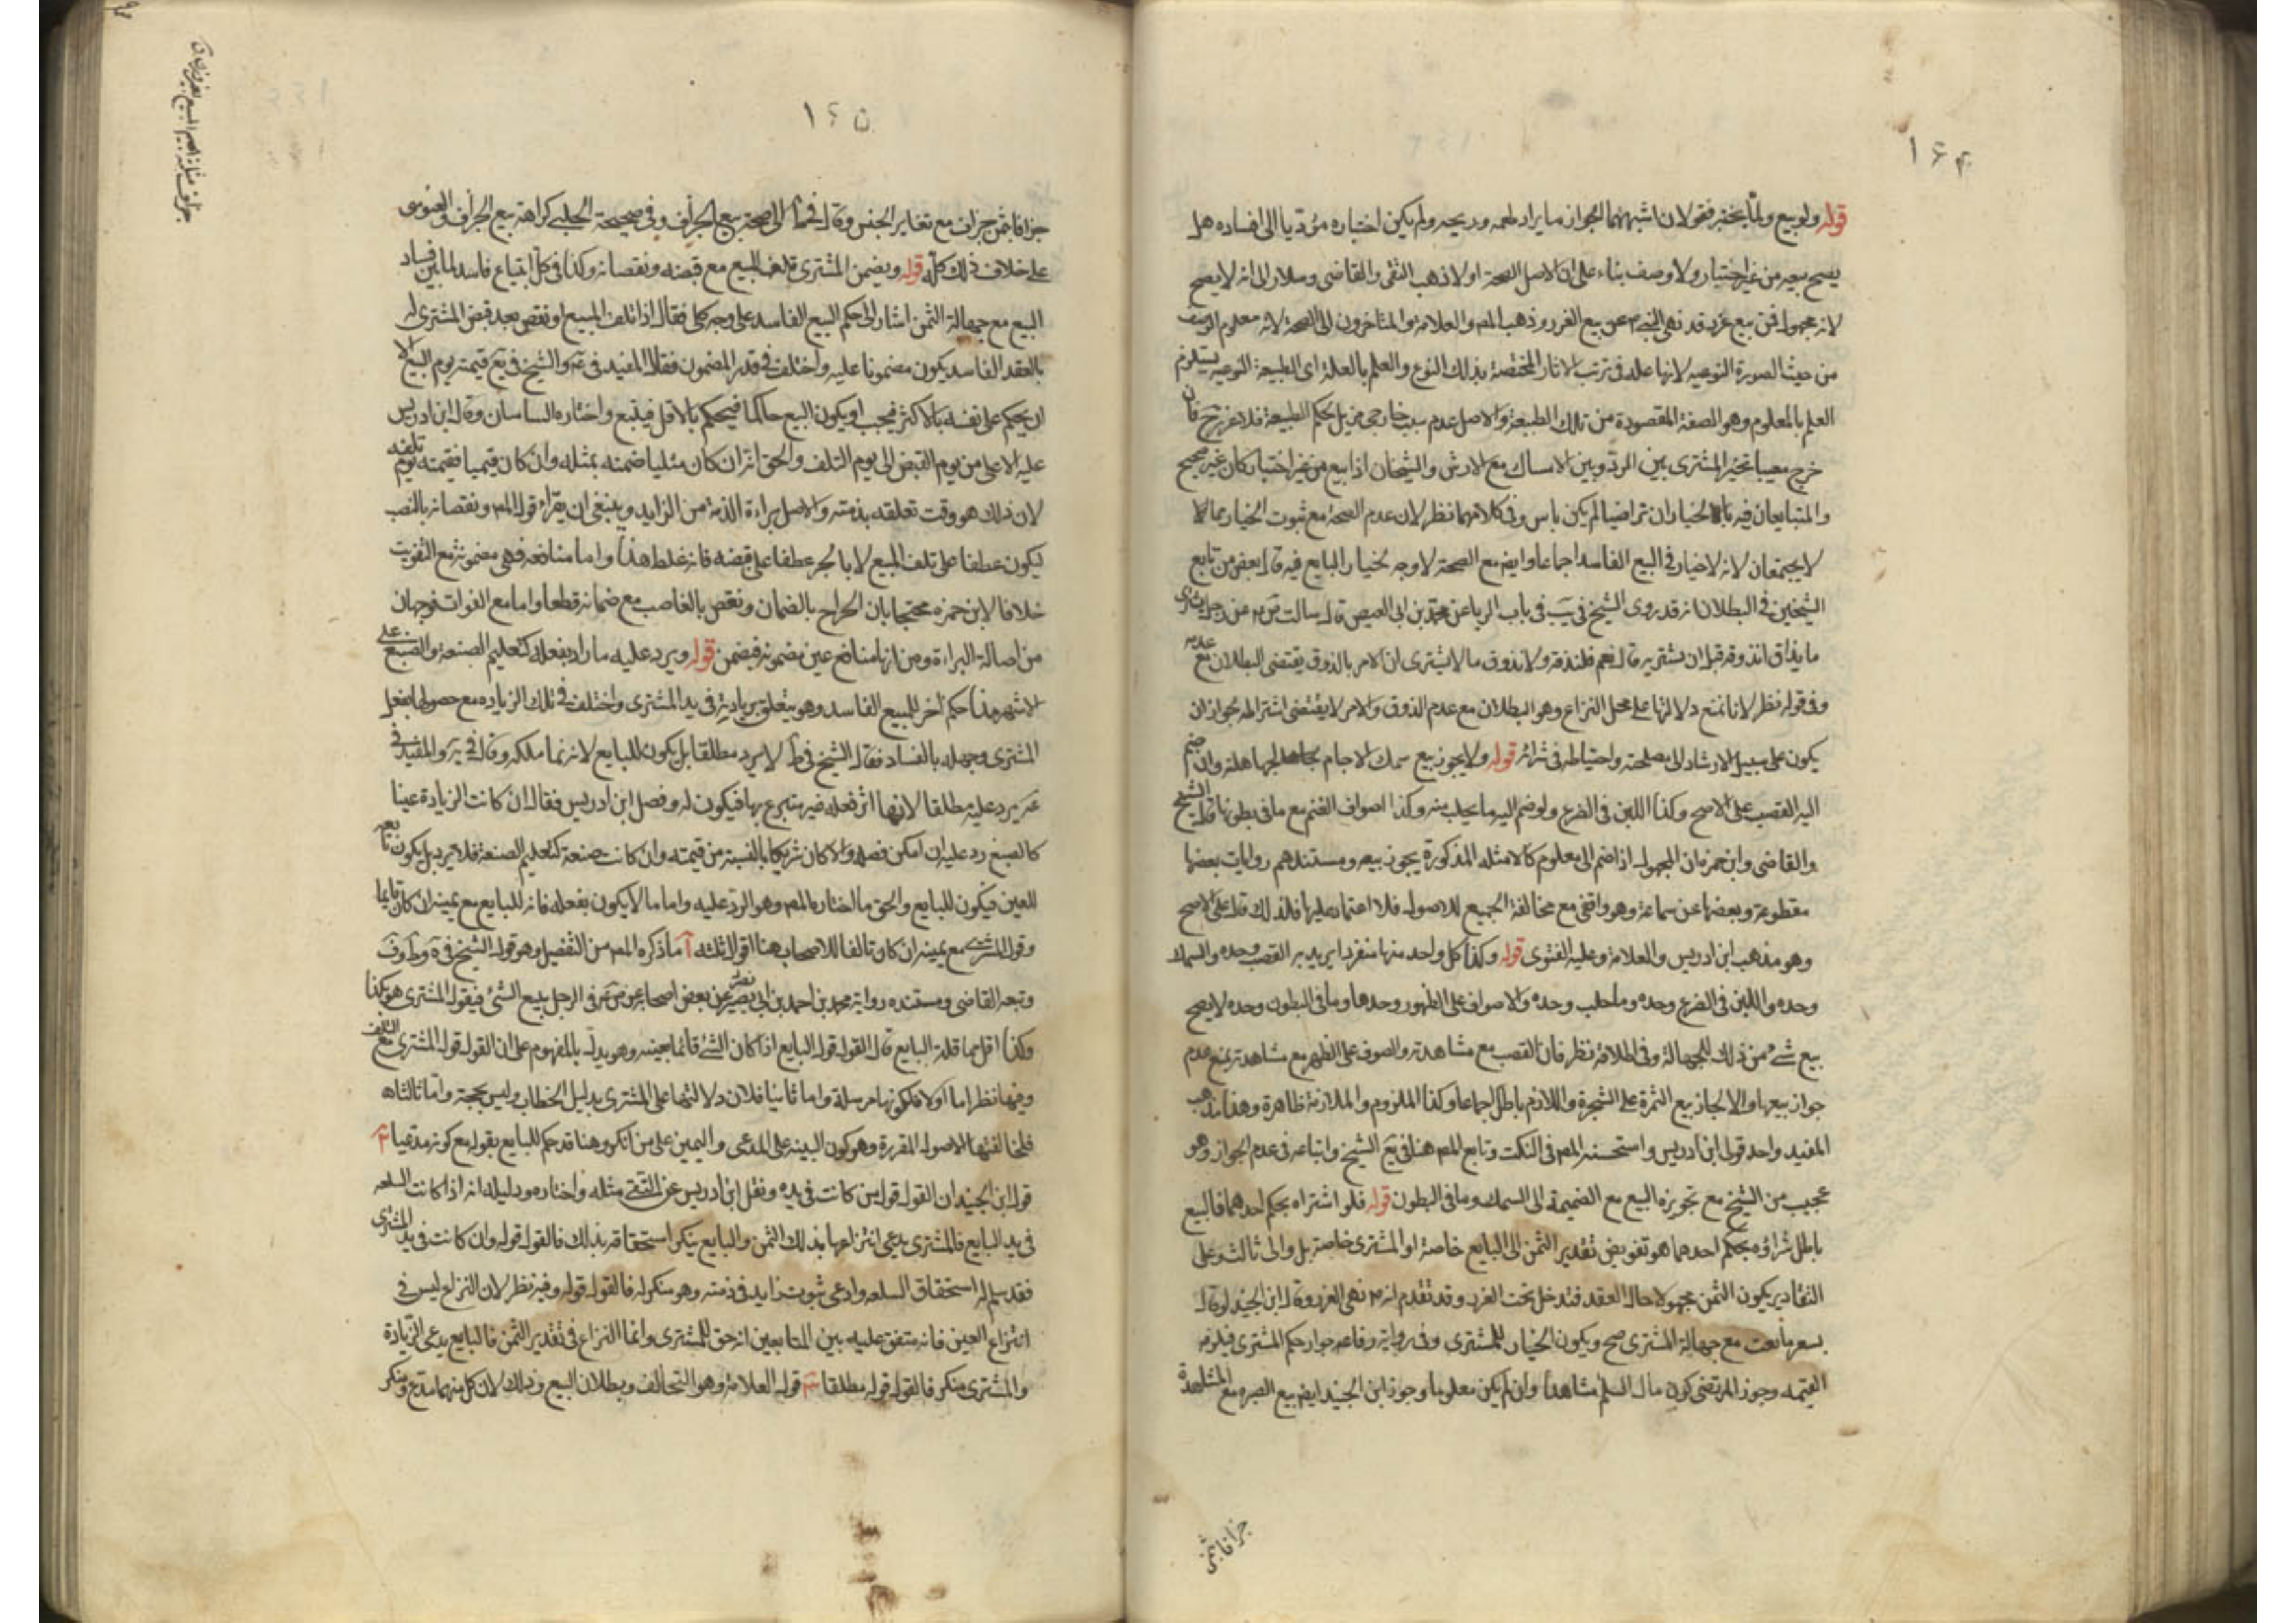 ۱۶۴
قوله ولو بيع ولما يختبر فقولان اشبههما الجواز ما يراد لطعمه وريحه ولم يكن اختباره مؤديا الى افساده هل
يصح بيعه من غير اختبار ولا وصف بناء على ان الاصل الصحة او لا ذهب التقى والقاضى وسلار الى انه لا يصح
لانه مجهول فن بيع غرر قد نهى النبي ص عن بيع الغرر وذهب المص والعلامة والمتاخرون الى الصحة لانه معلوم الوصف
من حيث الصورة النوعيه لانها علة فى ترتب الاثار المختصة بذلك النوع والعلم بالعلة اى الطبيعة النوعيه يستلزم
العلم بالمعلوم وهو الصفة المقصودة من تلك الطبيعة والاصل عدم سبب خارجى مزيل لحكم الطبيعة فلا غرر ح فان
خرج معيبا تخير المشترى بين الرد وبين الامساك مع الارش والشيخان اذا بيع من غير اختبار كان غير صحيح
والمتبايعان فيه بالخيار ان تراضيا لم يكن باس وفى كلامهما نظر لان عدم الصحة مع ثبوت الخيار مما لا
لا يجتمعان لانه لا خيار فى البيع الفاسد اجماعا وايض مع الصحة لا وجه لخيار البايع فيه قال بعض من تابع
الشيخين فى البطلان انه قد روى الشيخ فى يب فى باب الربا عن محمد بن ابى العيص قال سالت ق م عن رجل يشترى
ما يذاق ايذوقه قبل ان يشتريه قال نعم فليذقه ولا يذوق ما لا يشترى ان الامر بالذوق يقتضى البطلان مع عدمه
وفى قوله نظر لانا نمنع دلالتها على محل النزاع وهو البطلان مع عدم الذوق والامر لا يقتضى اشتراطه لجواز ان
يكون على سبيل الارشاد الى مصلحته واحتياطه فى شرائه قوله ولا يجوز بيع سمك الاجام لجهالته وان ضم
اليه القصب على الاصح وكذا اللبن فى الضرع ولو ضم اليه ما يحلب منه وكذا اصواف الغنم مع ما فى بطونها قال الشيخ
والقاضى وابن حمزه ان المجهول اذا ضم الى معلوم كالامثله المذكورة يجوز بيعه ومستندهم روايات بعضها
مقطوعة وبعضها عن سماعة وهو واقفى مع مخالفة الجميع للاصول فلا اعتماد عليها فلذلك قال على الاصح
وهو مذهب ابن ادريس والعلامة وعليه الفتوى قوله وكذا كل واحد منها منفردا يريد به القصب وحده والسمك
وحده واللبن فى الضرع وحده وما حلب وحده والاصواف على الظهور وحدها وما فى البطون وحده لا يصح
بيع شئ من ذلك للجهالة وفى اطلاقه نظر فان القصب مع مشاهدته والصوف على الظهر مع مشاهدته نمنع عدم
جواز بيعها والا لجاز بيع الثمرة على الشجرة واللازم باطل اجماعا وكذا الملزوم والملازمة ظاهرة وهذا مذهب
المفيد واحد قولى ابن ادريس واستحسنه المص فى النكت وتابع المص هنا فى يع الشيخ واتباعه فى عدم الجواز وهو
عجيب من الشيخ مع تجويزه البيع مع الضميمة الى السمك وما فى البطون قوله فلو اشتراه بحكم احدهما فالبيع
باطل شراؤه بحكم احدهما هو تفويض تقدير الثمن الى البايع خاصة او المشترى خاصة بل والى ثالث وعلى
التقادير يكون الثمن مجهولا حال العقد فتدخل تحت الغرر وقد تقدم انه م نهى الغرر وقال ابن الجنيد لو قال
بسعر ما بعت مع جهالة المشترى صح ويكون الخيار للمشترى وفى رواية رفاعه جواز حكم المشترى فيلزمه
القيمه وجوز المرتضى كون مال السلم مشاهدا وان لم يكن معلوما وجوز ابن الجنيد ايض بيع الصبره مع المشاهدة
جزافا بثمن
۱۶۵
جزافا بثمن جزاف مع تغاير الجنس وقال فى ط الى صحة بيع الجزاف وفى صحيحة الحلبى كراهة بيع الجزاف والفتوى
على خلاف ذلك كله قوله ويضمن المشترى تلف المبيع مع قبضه ونقصانه وكذا فى كل ابتياع فاسد لما بين فساد
البيع مع جهالة الثمن اشار الى حكم البيع الفاسد على وجه كلى فقال اذا تلف المبيع او نقص بعد قبض المشترى له
بالعقد الفاسد يكون مضمونا عليه واختلف فى قدر المضمون فقال المفيد فى عه والشيخ فى يه قيمته يوم البيع الا
ان يحكم على نفسه بالاكثر فيجب او يكون البيع حاكما فيحكم بالاقل فيتبع واختاره الساسان وقال ابن ادريس
عليه الاعلى من يوم القبض الى يوم التلف والحق انه ان كان مثليا ضمنه بمثله وان كان قيميا فقيمته يوم تلفه
لان ذلك هو وقت تعلقه بذمته والاصل براءة الذمة من الزايد وينبغى ان يقراء قول المص ونقصانه بالنصب
ليكون عطفا على تلف المبيع لا بالجر عطفا على قبضه فانه غلط هذا واما منافعه فهى مضمونة مع التفويت
خلافا لابن حمزه محتجا بان الخراج بالضمان ونقض بالغاصب مع ضمانه قطعا واما مع الفوات فوجهان
من اصالة البراءة ومن انها منافع عين مضمونة فيضمن قوله ويرد عليه ما زاد بفعله كتعليم الصنعة والصبغ على
الاشهر هذا حكم اخر للمبيع الفاسد وهو يتعلق بزيادته فى يد المشترى واختلف فى تلك الزياده مع حصولها بفعل
المشترى وجهله بالفساد فقال الشيخ فى ط لا يرد مطلقا بل يكون للبايع لانه نما ملكه وقال فى يه والمفيد فى
عه يرد عليه مطلقا لانها اثر فعله غير متبرع بها فيكون له وفصل ابن ادريس فقال ان كانت الزيادة عينا
كالصبغ رد عليه ان امكن فصله والا كان شريكا بالنسبة من قيمته وان كانت صنعة كتعليم الصنعة فلا يرد بل يكون تابعه
للعين فيكون للبايع والحق ما اختاره المص وهو الرد عليه واما ما لا يكون بفعله فانه للبايع مع يمينه ان كان قايما
وقول المشترى مع يمينه ان كان تالفا للاصحاب هنا اقوال ثلثه آ ما ذكره المص من التفصيل وهو قول الشيخ فى ه وط وف
وتبعه القاضى ومستنده رواية محمد بن احمد بن ابى نصر عن بعض اصحابه عن ص م فى الرجل يبيع الشئ فيقول المشترى هو بكذا
وكذا اقل مما قال البايع قال القول قول البايع اذا كان الشئ قائما بعينه وهو يدل بالمفهوم على ان القول قول المشترى مع التلف
وفيها نظر اما اولا فلكونها مرسلة واما ثانيا فلان دلالتها على المشترى بدليل الخطاب وليس بحجة واما ثالثا
فلمخالفتها الاصول المقررة وهو كون البينه على المدعى واليمين على من انكر وهنا قد حكم للبايع بقوله مع كونه مدعيا ب
قول ابن الجنيد ان القول قول من كانت فى يده ونقل ابن ادريس عن التقى مثله واختاره ودليله انه اذا كانت السلعه
فى يد البايع فالمشترى يدعى انتزاعها بذلك الثمن والبايع ينكر استحقاقه بذلك فالقول قوله وان كانت فى يد المشترى
فقد سلم له استحقاق السلعه وادعى ثبوت زايد فى ذمته وهو منكر له فالقول قوله وفيه نظر لان النزاع ليس فى
انتزاع العين فانه متفق عليه بين المتابعين انه حق للمشترى وانما النزاع فى تقدير الثمن فالبايع يدعى الزيادة
والمشترى منكر فالقول قوله مطلقا قول العلامة وهو التحالف وبطلان البيع وذلك لان كل منهما مدع ومنكر